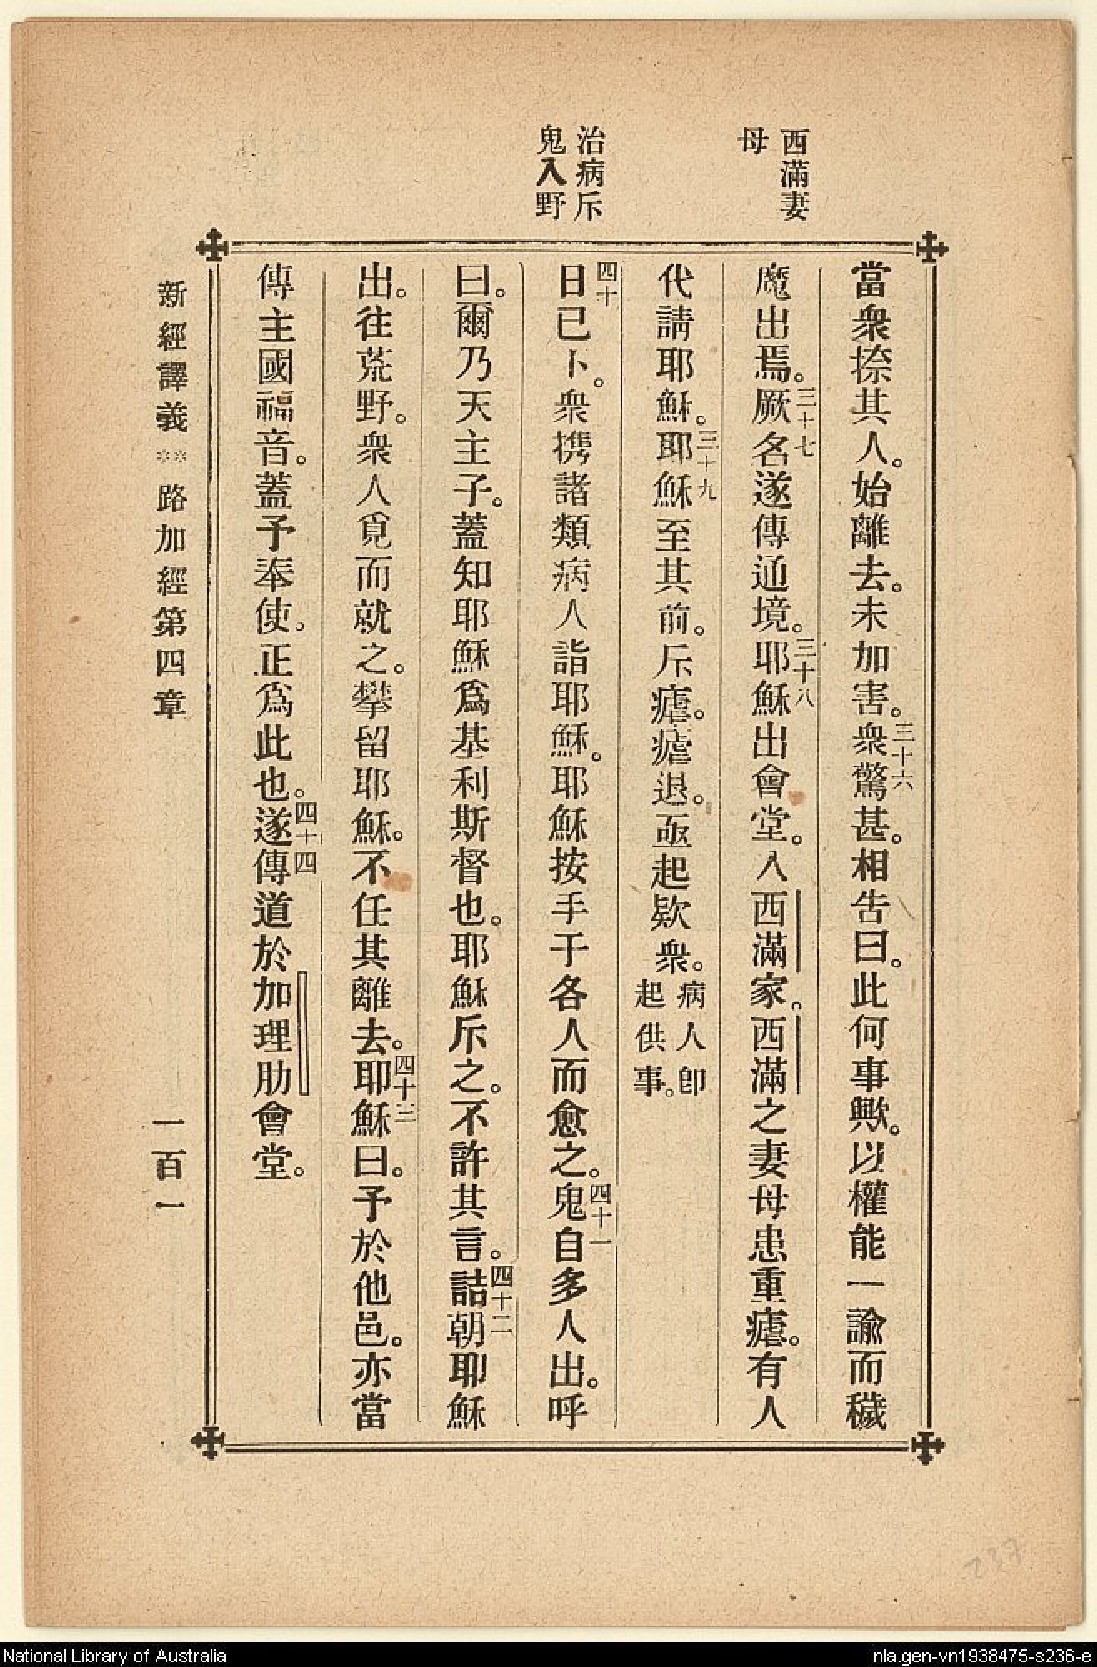 西滿妻
母
治病斥
鬼入野
當衆捺其人。始離去。未加害。三十六衆驚甚。相告曰。此何事歟。以權能一諭而穢
魔出焉。三十七厥名遂傳通境。三十八耶穌出會堂。入西滿家。西滿之妻母患重瘧。有人
代請耶穌。三十九耶穌至其前。斥瘧。瘧退。亟起欵衆。病人卽起供事。
四十日已卜。衆携諸類病人詣耶穌。耶穌按手于各人而愈之。四十一鬼自多人出。呼
曰。爾乃天主子。蓋知耶穌爲基利斯督也。耶穌斥之。不許其言。四十二詰朝耶穌
出。往荒野。衆人覓而就之。攀留耶穌。不任其離去。四十三耶穌曰。予於他邑。亦當
傳主國福音。蓋予奉使。正爲此也。四十四遂傳道於加理肋會堂。
新經譯義**路加經第四章 一百一
237
National Library of Australia
nla.gen-vn1938475-s236-e